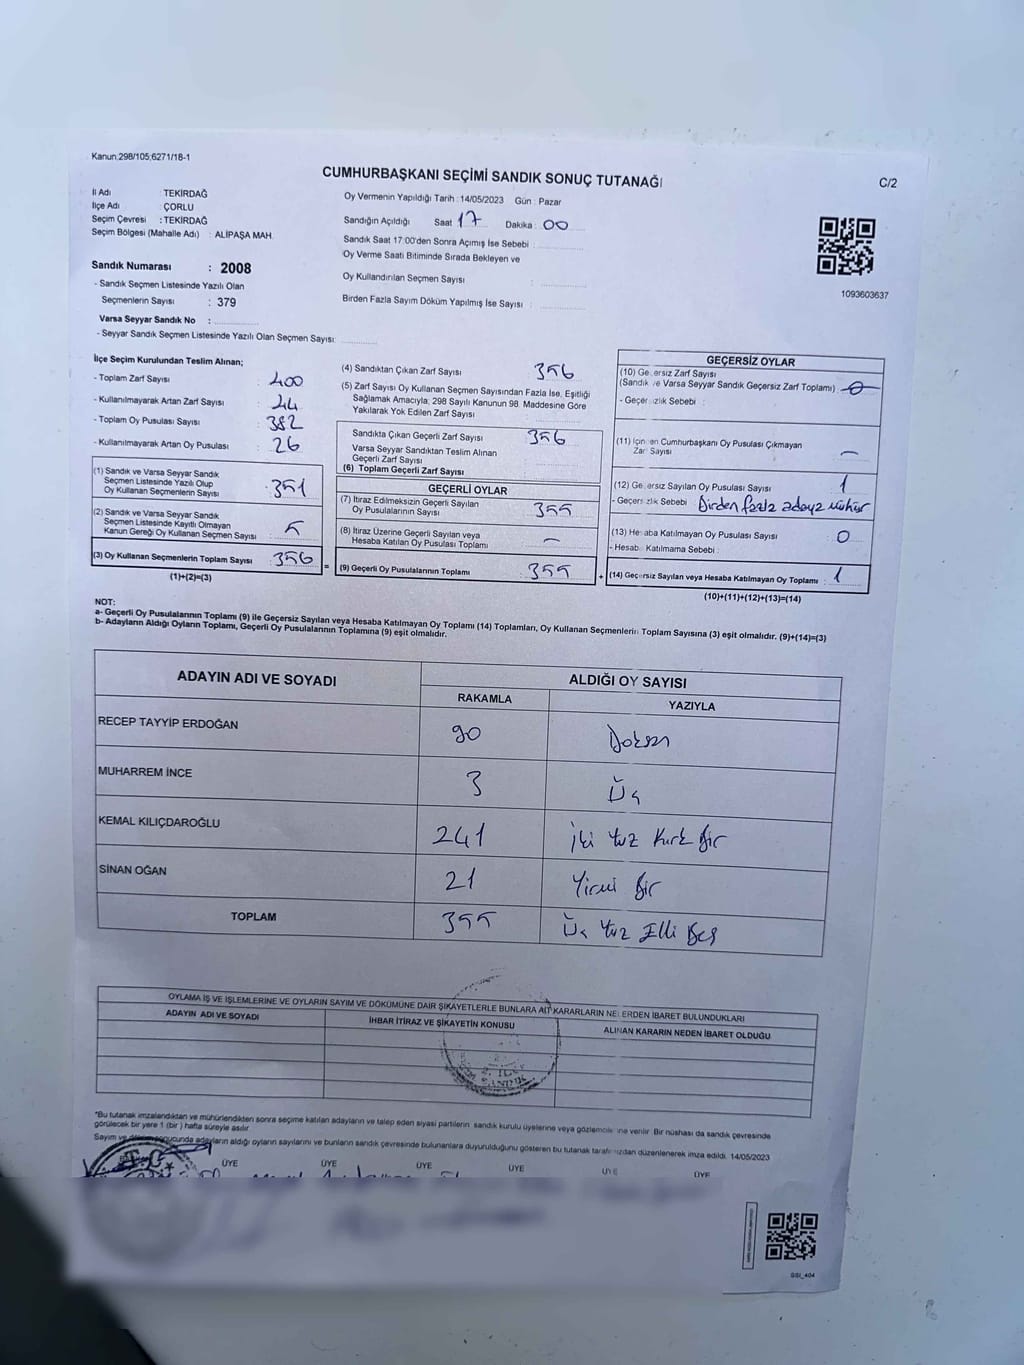 Kanun:298/105;6271/18-1
CUMHURBAŞKANI SEÇİMİ SANDIK SONUÇ TUTANAĞI
C/2
İl Adı : TEKİRDAĞ
İlçe Adı : ÇORLU
Seçim Çevresi : TEKİRDAĞ
Seçim Bölgesi (Mahalle Adı) : ALİPAŞA MAH.
Oy Vermenin Yapıldığı Tarih : 14/05/2023 Gün : Pazar
Sandığın Açıldığı Saat 17 Dakika : 00
Sandık Saat 17:00'den Sonra Açımış İse Sebebi :
Oy Verme Saati Bitiminde Sırada Bekleyen ve
Oy Kullandırılan Seçmen Sayısı :
Birden Fazla Sayım Döküm Yapılmış İse Sayısı :
1093603637
Sandık Numarası : 2008
- Sandık Seçmen Listesinde Yazılı Olan
Seçmenlerin Sayısı : 379
Varsa Seyyar Sandık No :
- Seyyar Sandık Seçmen Listesinde Yazılı Olan Seçmen Sayısı:
İlçe Seçim Kurulundan Teslim Alınan;
- Toplam Zarf Sayısı : 400
- Kullanılmayarak Artan Zarf Sayısı : 44
- Toplam Oy Pusulası Sayısı : 382
- Kullanılmayarak Artan Oy Pusulası : 26
(1) Sandık ve Varsa Seyyar Sandık
Seçmen Listesinde Yazılı Olup
Oy Kullanan Seçmenlerin Sayısı : 351
(2) Sandık ve Varsa Seyyar Sandık
Seçmen Listesinde Kayıtlı Olmayan
Kanun Gereği Oy Kullanan Seçmen Sayısı : 5
(3) Oy Kullanan Seçmenlerin Toplam Sayısı : 356
(1)+(2)=(3)
(4) Sandıktan Çıkan Zarf Sayısı : 356
(5) Zarf Sayısı Oy Kullanan Seçmen Sayısından Fazla İse, Eşitliği
Sağlamak Amacıyla; 298 Sayılı Kanunun 98. Maddesine Göre
Yakılarak Yok Edilen Zarf Sayısı :
Sandıkta Çıkan Geçerli Zarf Sayısı : 356
Varsa Seyyar Sandıktan Teslim Alınan
Geçerli Zarf Sayısı :
(6) Toplam Geçerli Zarf Sayısı :
GEÇERLİ OYLAR
(7) İtiraz Edilmeksizin Geçerli Sayılan
Oy Pusulalarının Sayısı : 355
(8) İtiraz Üzerine Geçerli Sayılan veya
Hesaba Katılan Oy Pusulası Toplamı : -
= (9) Geçerli Oy Pusulalarının Toplamı : 355
GEÇERSİZ OYLAR
(10) Ge ersiz Zarf Sayısı
(Sandık ve Varsa Seyyar Sandık Geçersiz Zarf Toplamı) : 0
- Geçer izlik Sebebi :
(11) İçin en Cumhurbaşkanı Oy Pusulası Çıkmayan
Zar Sayısı : -
(12) Ge ersiz Sayılan Oy Pusulası Sayısı : 1
- Geçers zlik Sebebi : Birden fazla adaya mühür
(13) He aba Katılmayan Oy Pusulası Sayısı : 0
- Hesab Katılmama Sebebi :
+ (14) Geçersiz Sayılan veya Hesaba Katılmayan Oy Toplamı : 1
(10)+(11)+(12)+(13)=(14)
NOT:
a- Geçerli Oy Pusulalarının Toplamı (9) ile Geçersiz Sayılan veya Hesaba Katılmayan Oy Toplamı (14) Toplamları, Oy Kullanan Seçmenlerin Toplam Sayısına (3) eşit olmalıdır. (9)+(14)=(3)
b- Adayların Aldığı Oyların Toplamı, Geçerli Oy Pusulalarının Toplamına (9) eşit olmalıdır.
ADAYIN ADI VE SOYADI
ALDIĞI OY SAYISI
RAKAMLA YAZIYLA
RECEP TAYYİP ERDOĞAN 90 Doksan
MUHARREM İNCE 3 Üç
KEMAL KILIÇDAROĞLU 241 İki Yüz Kırk Bir
SİNAN OĞAN 21 Yirmi Bir
TOPLAM 355 Üç Yüz Elli Beş
OYLAMA İŞ VE İŞLEMLERİNE VE OYLARIN SAYIM VE DÖKÜMÜNE DAİR ŞİKAYETLERLE BUNLARA AİT KARARLARIN NELERDEN İBARET BULUNDUKLARI
ADAYIN ADI VE SOYADI İHBAR İTİRAZ VE ŞİKAYETİN KONUSU ALINAN KARARIN NEDEN İBARET OLDUĞU
*Bu tutanak imzalandıktan ve mühürlendikten sonra seçime katılan adayların ve talep eden siyasi partilerin sandık kurulu üyelerine veya gözlemcilerine verilir. Bir nüshası da sandık çevresinde
görülecek bir yere 1 (bir ) hafta süreyle asılır.
Sayım ve döküm sonucunda adayların aldığı oyların sayılarını ve bunların sandık çevresinde bulunanlara duyurulduğunu gösteren bu tutanak tarafımızdan düzenlenerek imza edildi. 14/05/2023
ÜYE ÜYE ÜYE ÜYE ÜYE ÜYE
GSI_404